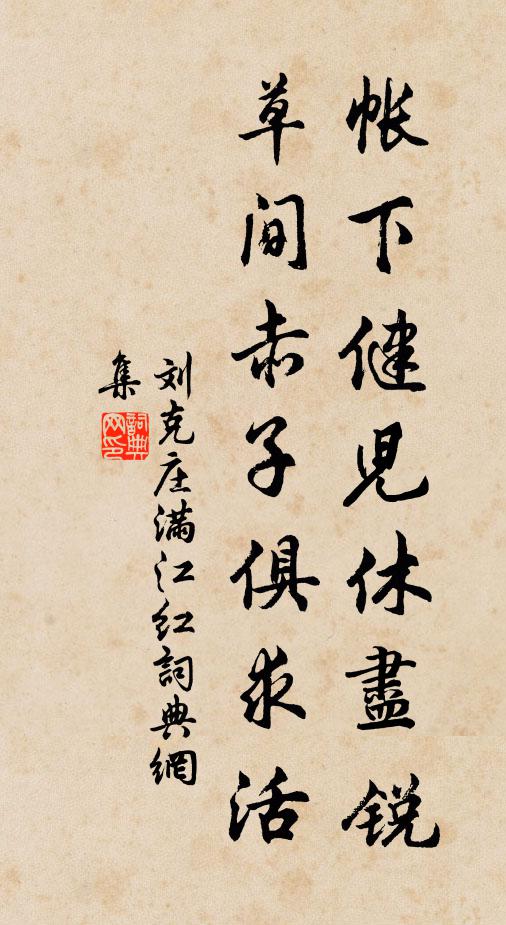 帐下健児休盡锐
草间赤子俱求活
刘克庄满江红詞典網
集
詞典
网印